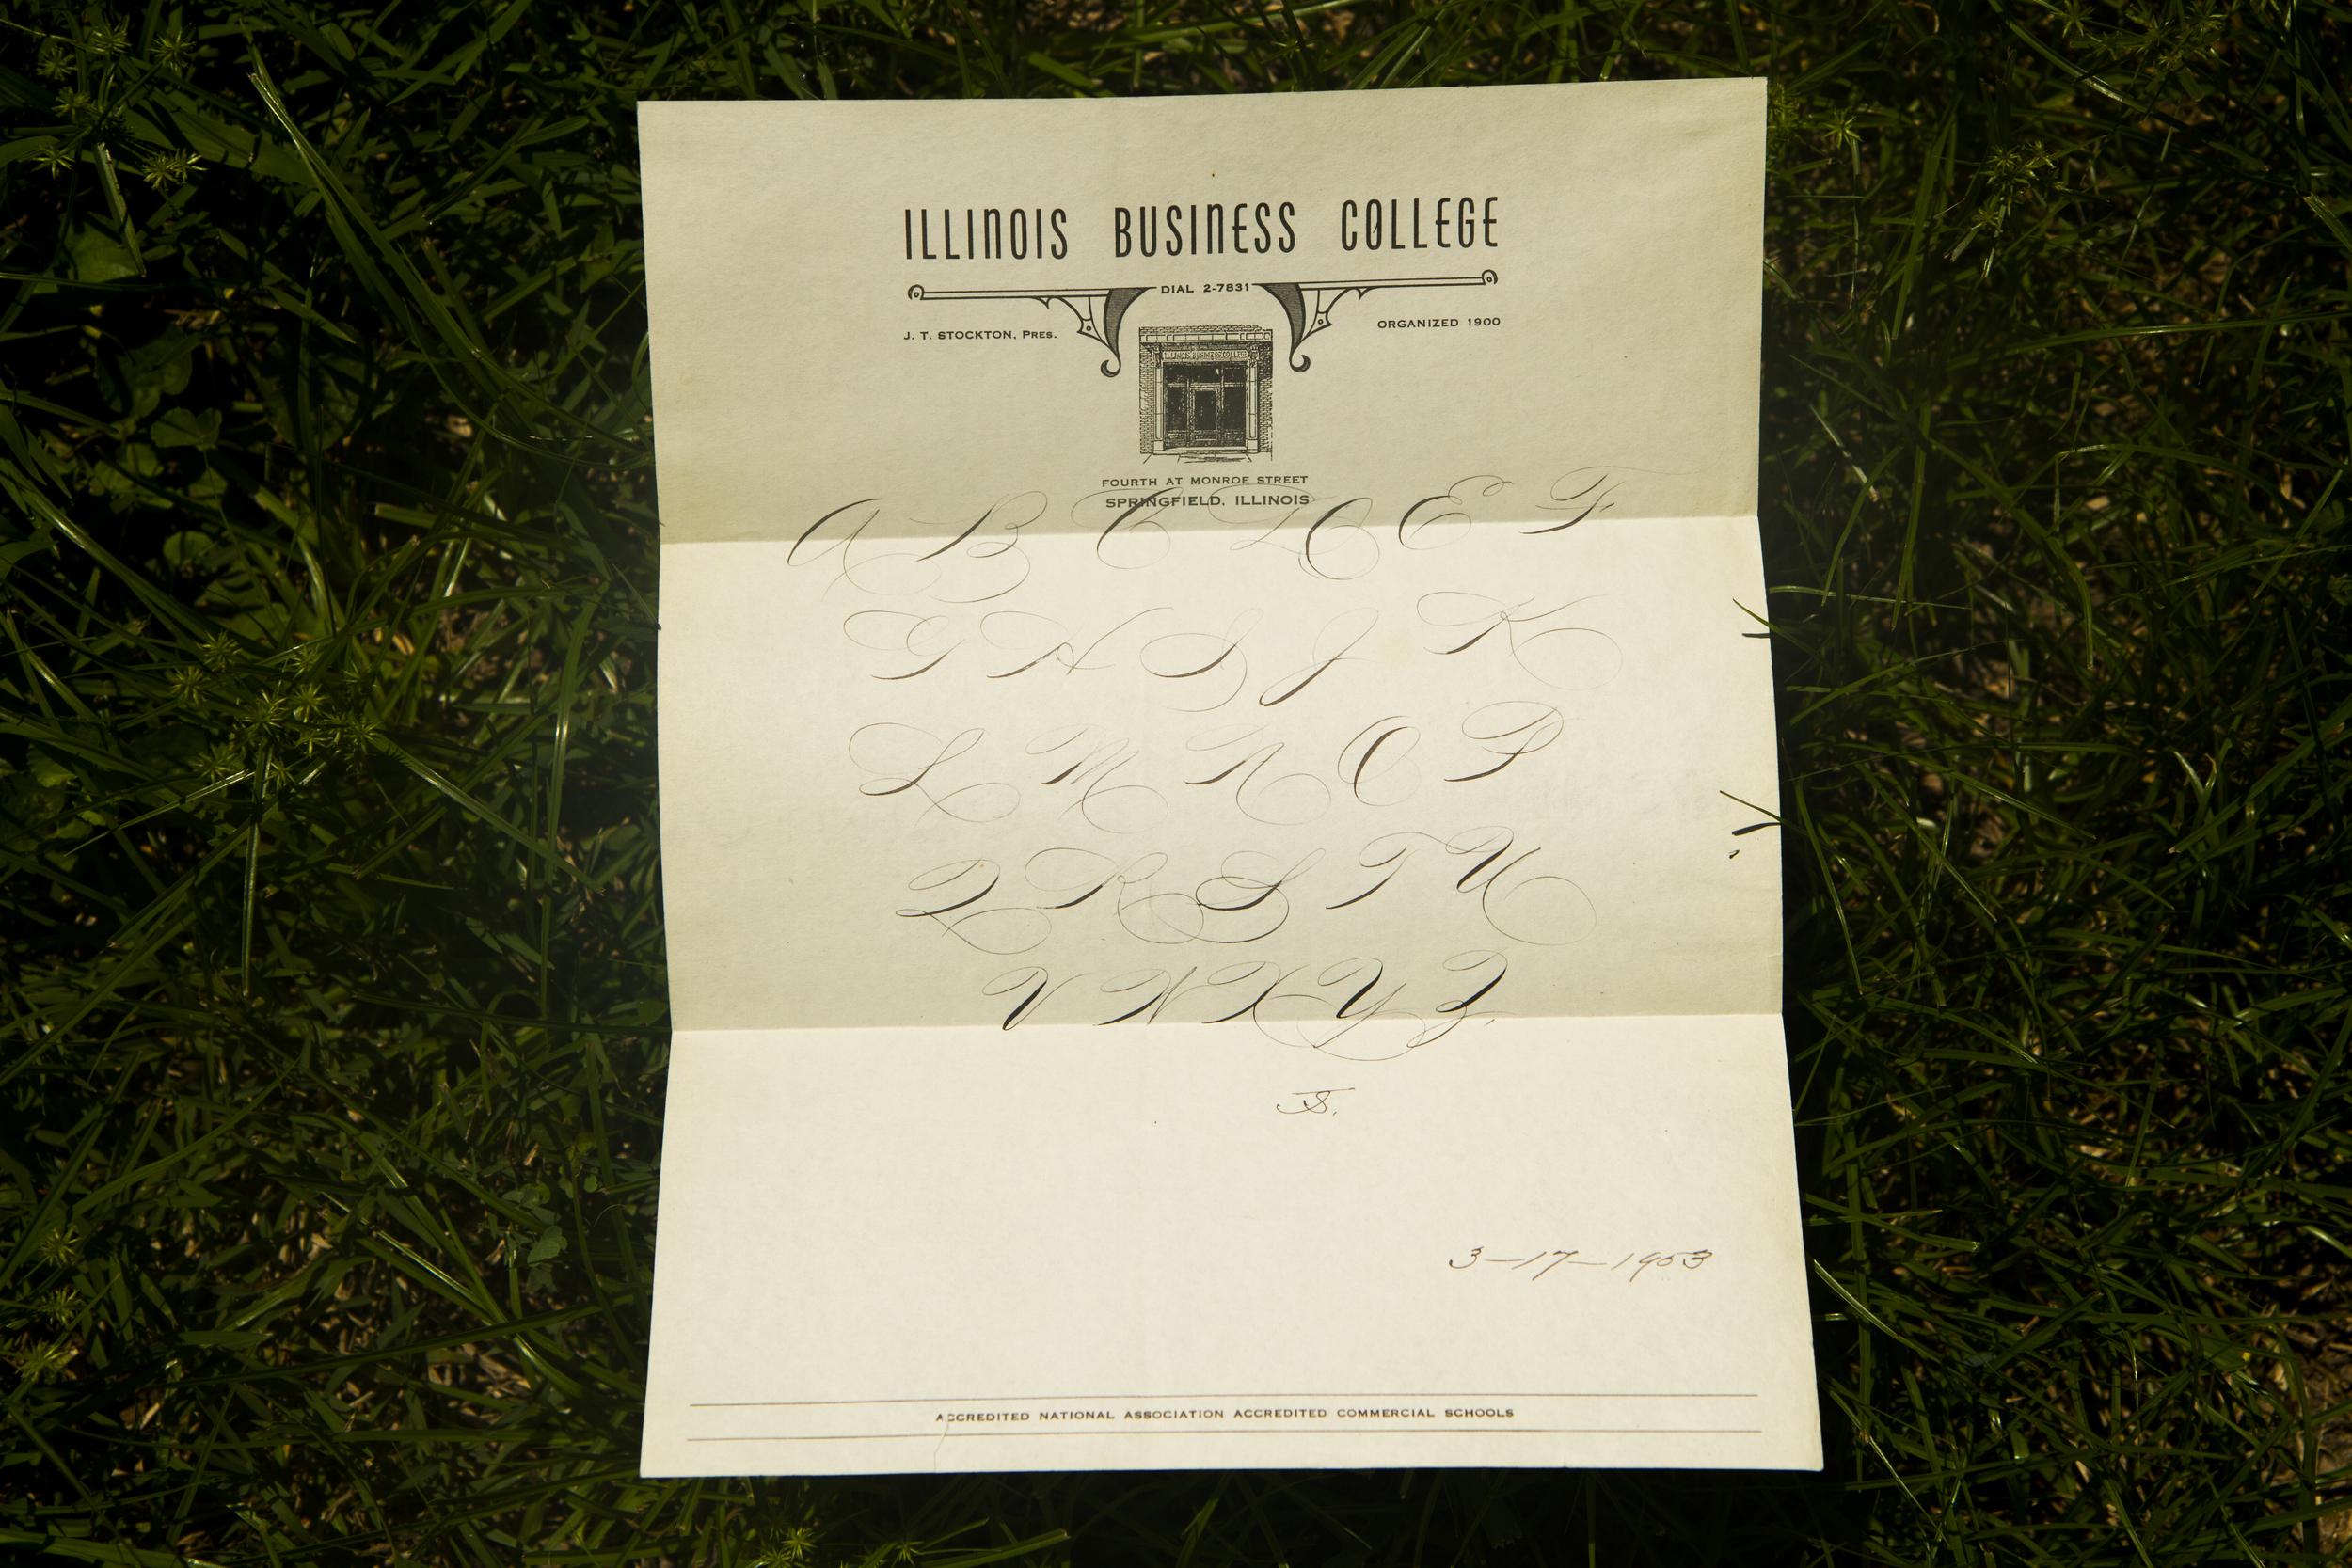 ILLINOIS BUSINESS COLLEGE
DIAL 2-7831
J. T. STOCKTON, PRES.
ORGANIZED 1900
ILLINOIS BUSINESS COLLEGE
FOURTH AT MONROE STREET
SPRINGFIELD, ILLINOIS
A B C D E F
G H I J K
L M N O P
Q R S T U
V W X Y Z
3-17-1953
ACCREDITED NATIONAL ASSOCIATION ACCREDITED COMMERCIAL SCHOOLS